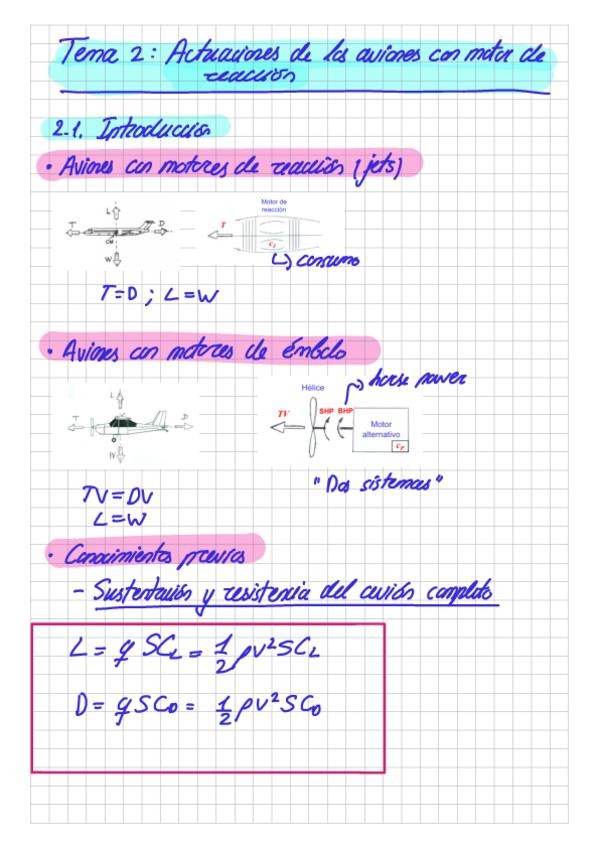 Tema 2: Actuaciones de los aviones con motor de
reacción
2.1. Introducción
• Aviones con motores de reacción (jets)
L
T
D
CM
W
Motor de
reacción
T
cJ
↳ consumo
T=D ; L=W
• Aviones con motores de émbolo
L
T
D
W
Hélice
horse power
TV
SHP BHP
Motor
alternativo
cP
"Dos sistemas"
TV=DV
L=W
• Conocimientos previos
- Sustentación y resistencia del avión completo
L = q SCL = 1/2 ρV²SCL
D = q SCD = 1/2 ρV²SCD